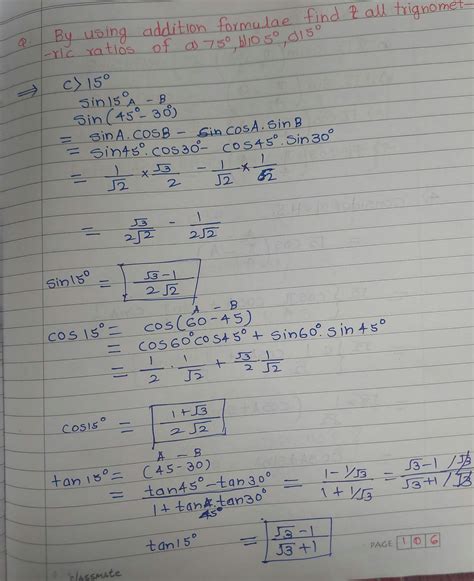 Q. By using addition formulae find & all trignomet-
-ric ratios of a) 75°, b) 105°, c) 15°
⇒ c> 15°
sin15°
A - B
sin(45° - 30°)
= sinA.cosB - sin cosA.sinB
= sin45°.cos30° - cos45°.sin30°
= 1/√2 × √3/2 - 1/√2 × 1/2
= √3/2√2 - 1/2√2
sin15° = √3-1/2√2
A - B
cos15° = cos(60-45)
= cos60°cos45° + sin60°.sin45°
= 1/2 · 1/√2 + √3/2 1/√2
cos15° = 1+√3/2√2
A - B
tan15° = (45-30)
= tan45° - tan30°/1 + tan45°.tan30° = 1 - 1/√3/1 + 1/√3 = √3-1/√3/√3+1/√3
tan15° = √3-1/√3+1
PAGE 106
classmate